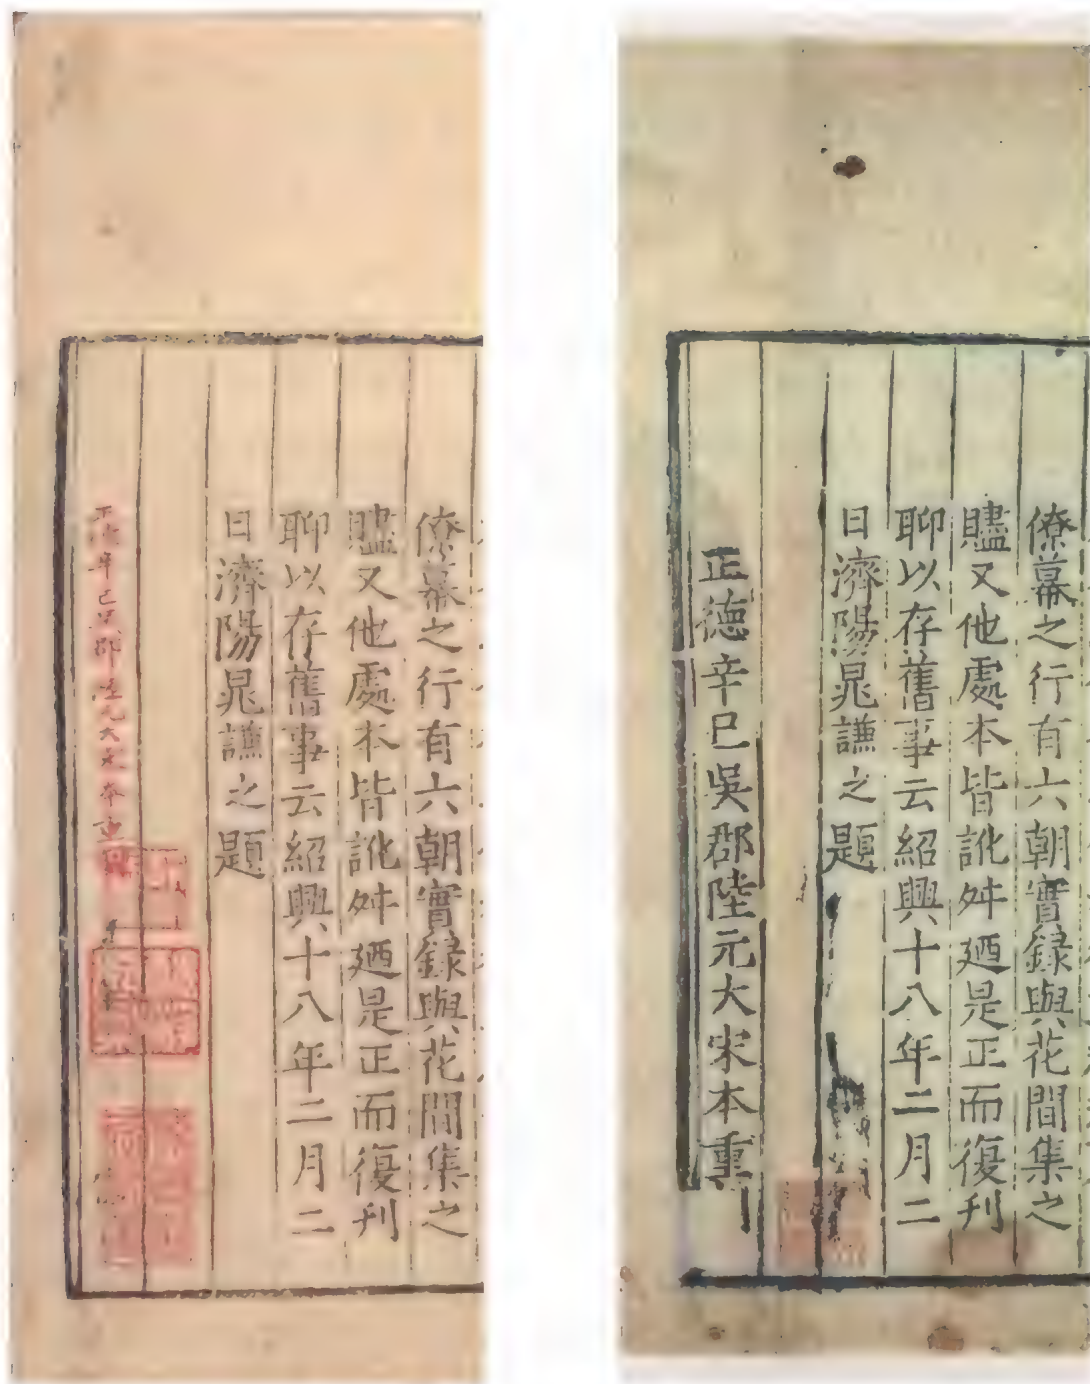 僚幕之行有六朝實録與花間集之
贐又他處本皆訛舛廼是正而復刊
聊以存舊事云紹興十八年二月二
日濟陽晁謙之題
正德辛巳吳郡陸元大宋本重
僚幕之行有六朝實録與花間集之
贐又他處本皆訛舛廼是正而復刊
聊以存舊事云紹興十八年二月二
日濟陽晁謙之題
正德辛巳吳郡陸元大宋本重